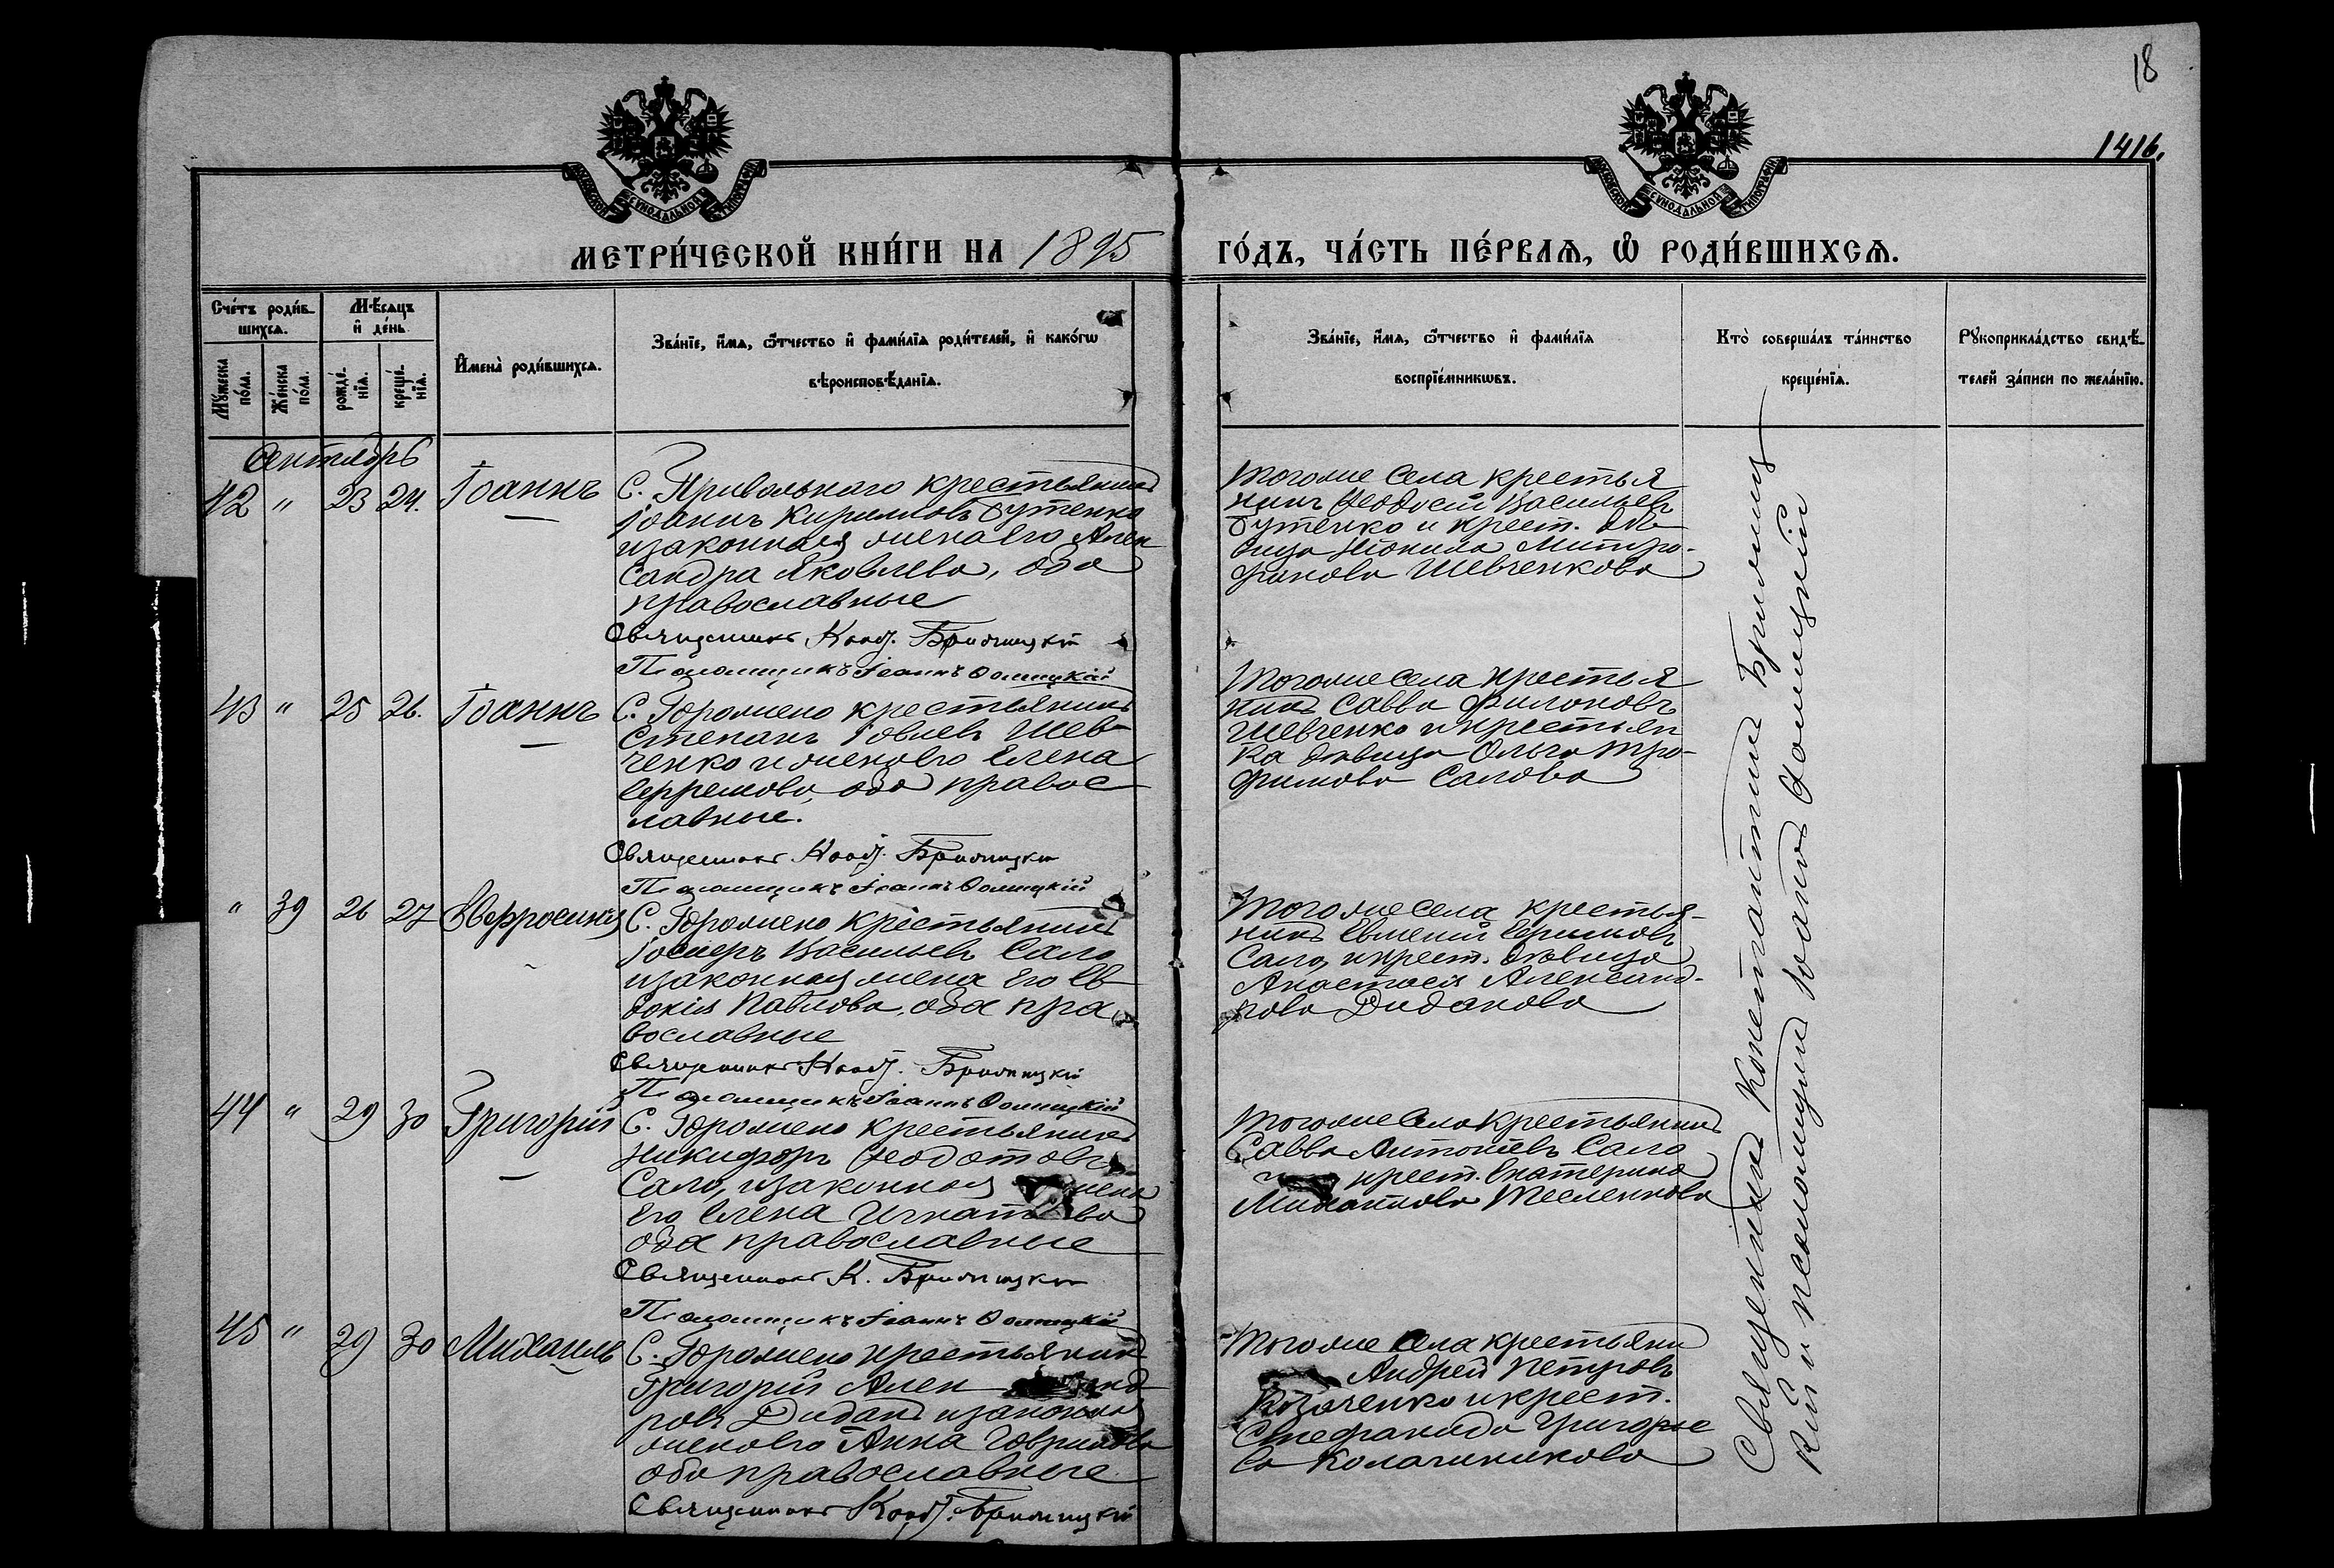 18
1416.
МЕТРИ́ЧЕСКОЙ КНИ́ГИ НА 1895 ГО́ДЪ, ЧА́СТЬ ПЕ́РВАѦ, Ѽ РОДИ́ВШИХСѦ.
Сче́тъ роди́в-
шихсѧ.
Му́жеска по́ла.
Же́нска по́ла.
Мѣ́сѧцъ
и де́нь
рожде́-нїѧ.
креще́-нїѧ.
Имена̀ роди́вшихсѧ.
Зва́нїе, и́мѧ, ѻ́тчество и фами́лїѧ роди́телей, и како́гѡ
вѣроисповѣ́данїѧ.
Зва́нїе, и́мѧ, ѻ́тчество и фами́лїѧ
воспрїе́мникѡвъ.
Кто̀ соверша́лъ та́инство
креще́нїѧ.
Рꙋкоприкла́дство свидѣ́-
телей за́писи по жела́нїю.
Сентябрь
42 " 23 24. Іоаннъ
С. Привольнаго крестьянинъ
Іоаннъ Кирилловъ Бутенко
и законная жена его Алек
сандра Яковлева, оба
православные
Священникъ Конст. Брилицкій
Псаломщикъ Іоаннъ
Тогоже села крестья
нинъ Феодосій Васильевъ
Бутенко и крест. дѣ-
вица Неонила Митро-
фанова Шевченкова
43 " 25 26. Іоаннъ
С. крестьянинъ
Степанъ Іовлевъ Шев-
ченко и жена его Елена
Ефремова, оба правос
лавные.
Священникъ Конст. Брилицкій
Псаломщикъ Іоаннъ
Тогоже села крестья
нинъ Савва Филоновъ
Шевченко и крестьян
ка дѣвица Ольга Тро-
фимова Салова
" 39 26 27 Евфросинія
С. крестьянинъ
Іосифъ Васильевъ Сало
и законная жена его Ев
докія Павлова, оба пра
вославные
Священникъ Конст. Брилицкій
Псаломщикъ Іоаннъ
Тогоже села крестья-
нинъ Евгеній Ефимовъ
Сало, и крест. дѣвица
Анастасія Александ-
рова Диданова
44 " 29 30 Григорій
С. крестьянинъ
Никифоръ Феодотовъ
Сало, и законная жена
его Елена Игнатова
оба православные
Священникъ К. Брилицкій
Псаломщикъ Іоаннъ
Тогоже села крестьянинъ
Савва Антоніевъ Сало
и крест. Екатерина
Михайлова Тесленкова
45 " 29 30 Михаилъ
С. крестьянинъ
Григорій Алек сандровъ Диданъ и законная
жена его Анна Гаврилова
оба православные
Священникъ Конст. Брилицкій
Тогоже села крестьяни
Андрей Петровъ
Козаченко и крест.
Стефанида Григорье
ва Колачникова
Священникъ Константинъ Брилиц
кій и псаломщикъ Іоаннъ